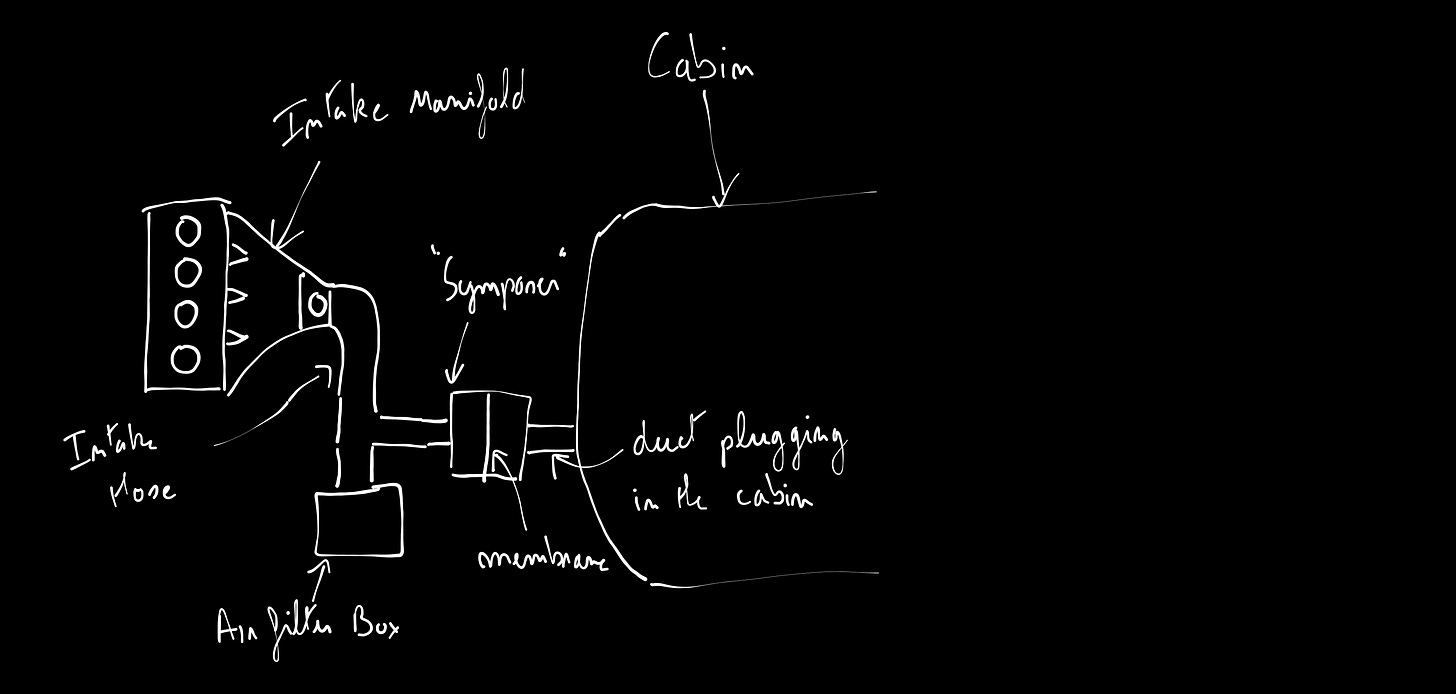 Cabin
Intake Manifold
"Symposer"
Intake
Hose
duct plugging
in the cabin
membrane
Air filter Box